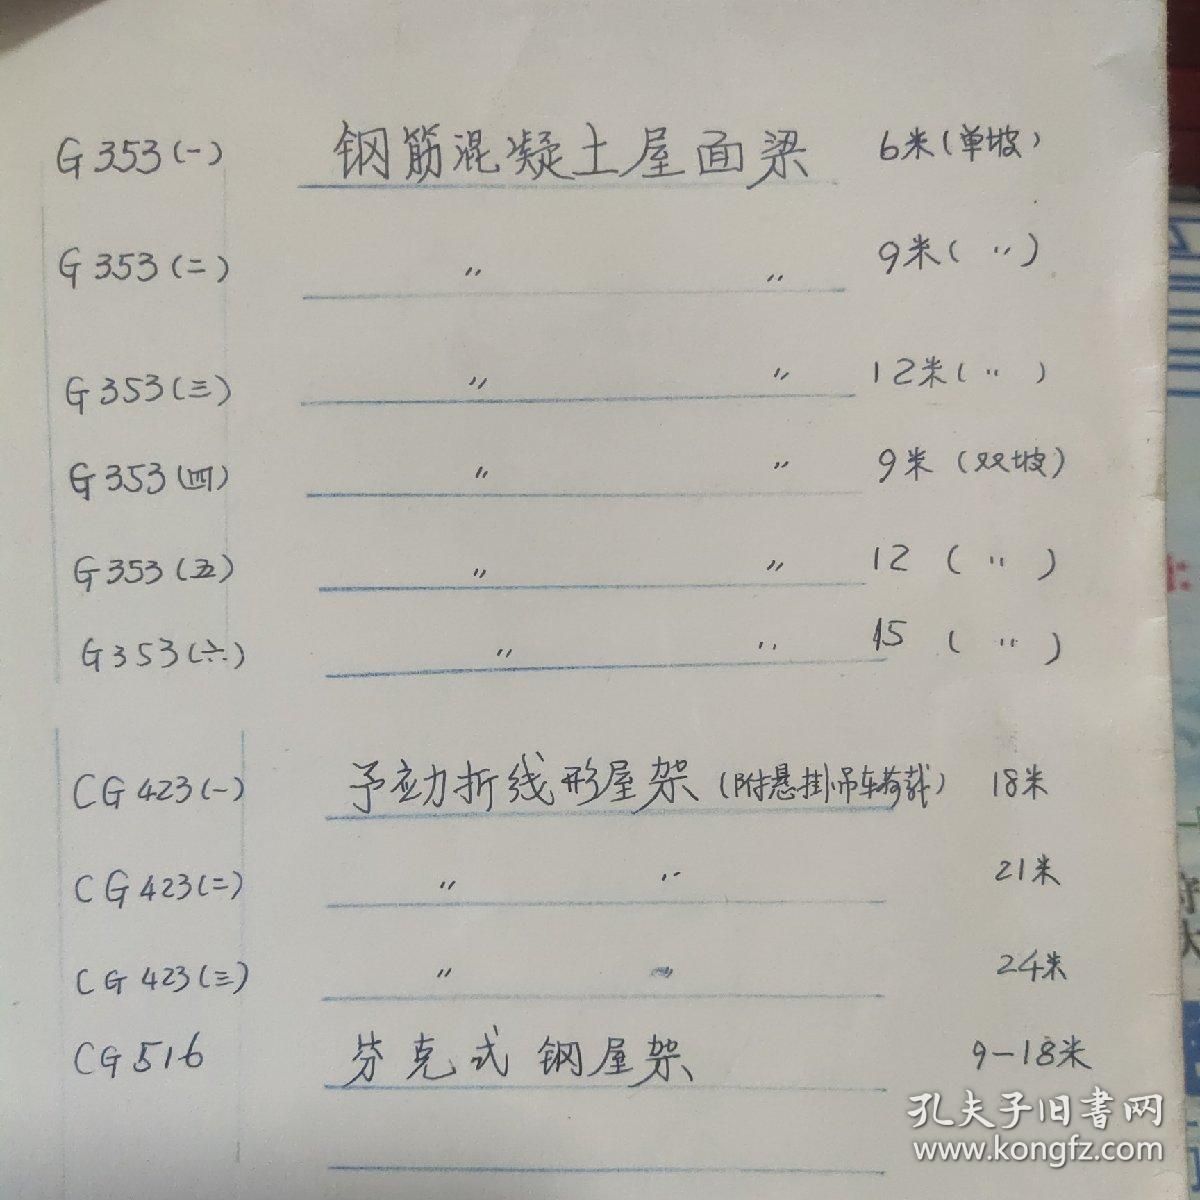 G353(一) 钢筋混凝土屋面梁 6米(单坡)
G353(二) 〃 〃 9米( 〃 )
G353(三) 〃 〃 12米( 〃 )
G353(四) 〃 〃 9米 (双坡)
G353(五) 〃 〃 12 ( 〃 )
G353(六) 〃 〃 15 ( 〃 )
CG423(一) 予应力折线形屋架(附悬挂吊车荷载) 18米
CG423(二) 〃 〃 21米
CG423(三) 〃 〃 24米
CG516 芬克式钢屋架 9-18米
孔夫子旧书网
www.kongfz.com